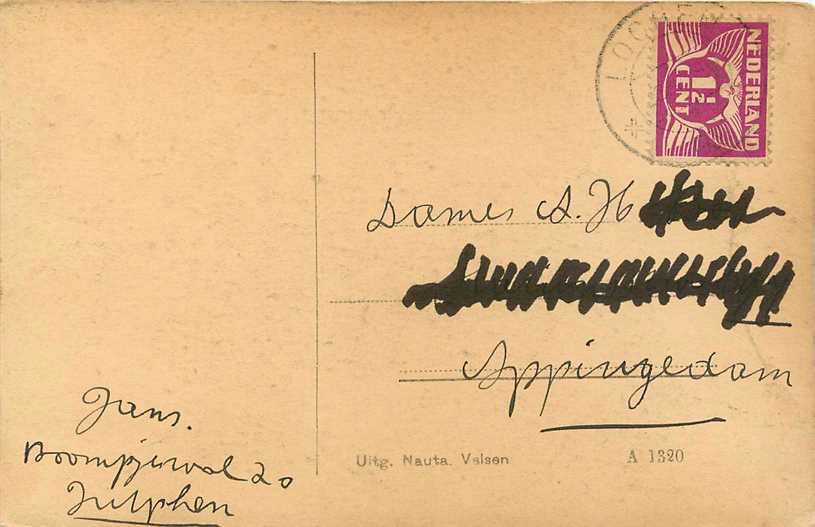 LOCHEM
NEDERLAND
1½
CENT
Dames A. H
Appingedam
Jans.
Boompjeswal 20
Zutphen
Uitg. Nauta. Velsen
A 1320